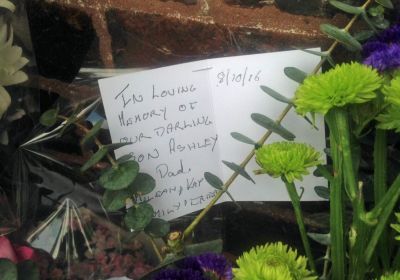 IN LOVING
MEMORY OF
OUR DARLING
SON ASHLEY
Dad,
8/10/16